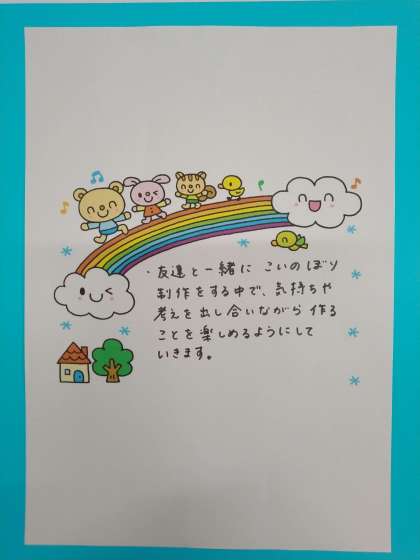 ・友達と一緒に こいのぼり
制作をする中で、気持ちや
考えを出し合いながら 作る
ことを楽しめるようにして
いきます。